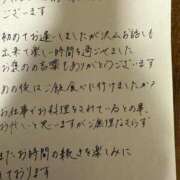 ございます
初めてお逢いしましたが沢山お話も
出来て楽しい時間を過ごせました
お褒めの言葉もありがとうございます
あの後はご飯食べに行けましたか?
お仕事でお料理をされているとの事、
お忙しいと思いますがご無理なさらず
またお時間の続きを楽しみに
しております